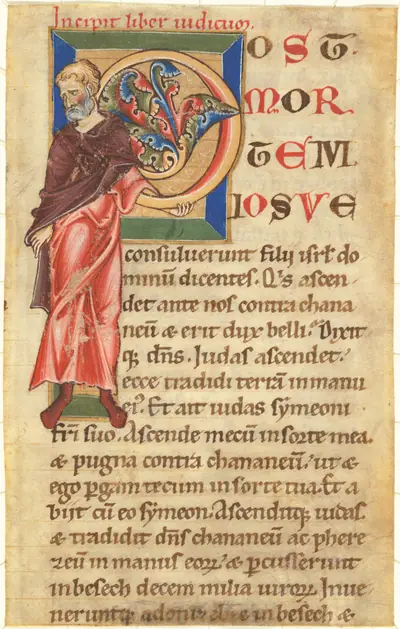 Incipit liber iudicum.
POST
MOR
TEM
IOSVE
consuluerunt filij isrl do
minū dicentes. Qis ascen
det ante nos contra chana
neū & erit dux belli. Dixit
q; dns. Iudas ascendet.
ecce tradidi terrā in manu
ei. Et ait iudas symeoni
fri suo. Ascende mecū in sorte mea.
& pugna contra chananeū. ut &
ego pgam tecum in sorte tua. Et a
bijt cū eo symeon. Ascenditq; iudas.
& tradidit dns chananeū ac phere
zeū in manus eoꝝ. & pcusserunt
in besech decem milia uiroꝝ. Inue
neruntq; adoni in besech &